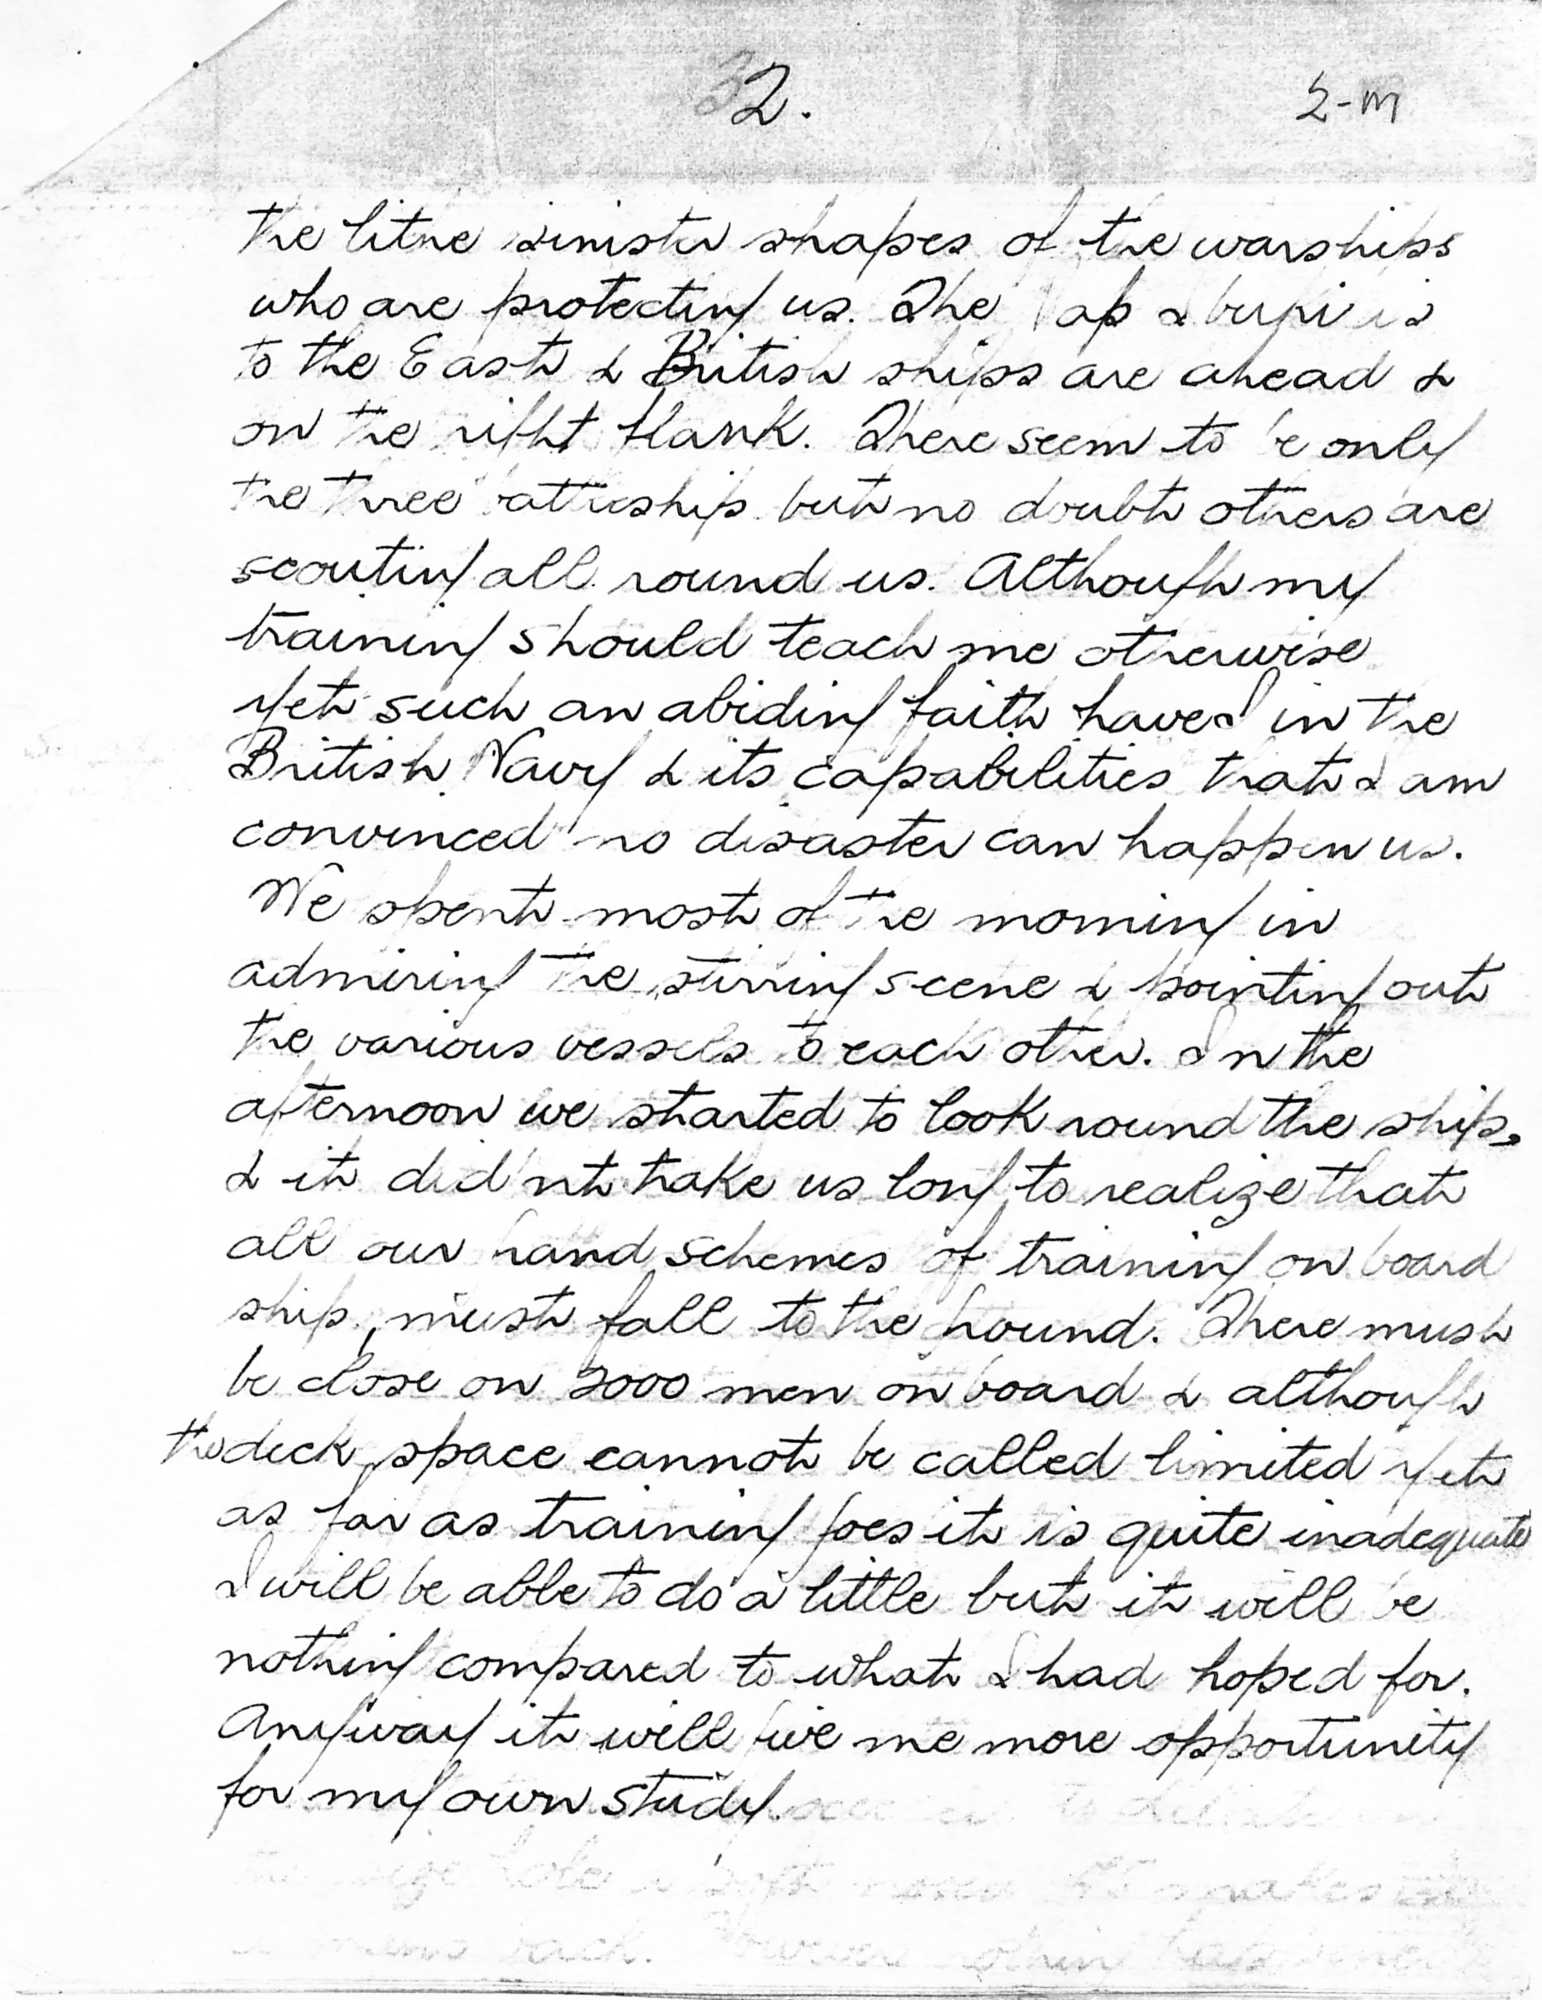 2.
2-M
the lithe sinister shapes of the warships
who are protecting us. The Jap Ibuki is
to the East & British ships are ahead &
on the right flank. There seem to be only
the three battleship but no doubt others are
scouting all round us. Although my
training should teach me otherwise
yet such an abiding faith have I in the
British Navy & its capabilities that I am
convinced no disaster can happen us.
We spent most of the morning in
admiring the stirring scene & pointing out
the various vessels to each other. In the
afternoon we started to look round the ship,
& it did'nt take us long to realize that
all our grand schemes of training on board
ship, must fall to the ground. There must
be close on 2000 men on board & although
the deck space cannot be called limited yet
as far as training goes it is quite inadequate
I will be able to do a little but it will be
nothing compared to what I had hoped for.
Anyway it will give me more opportunity
for my own study.